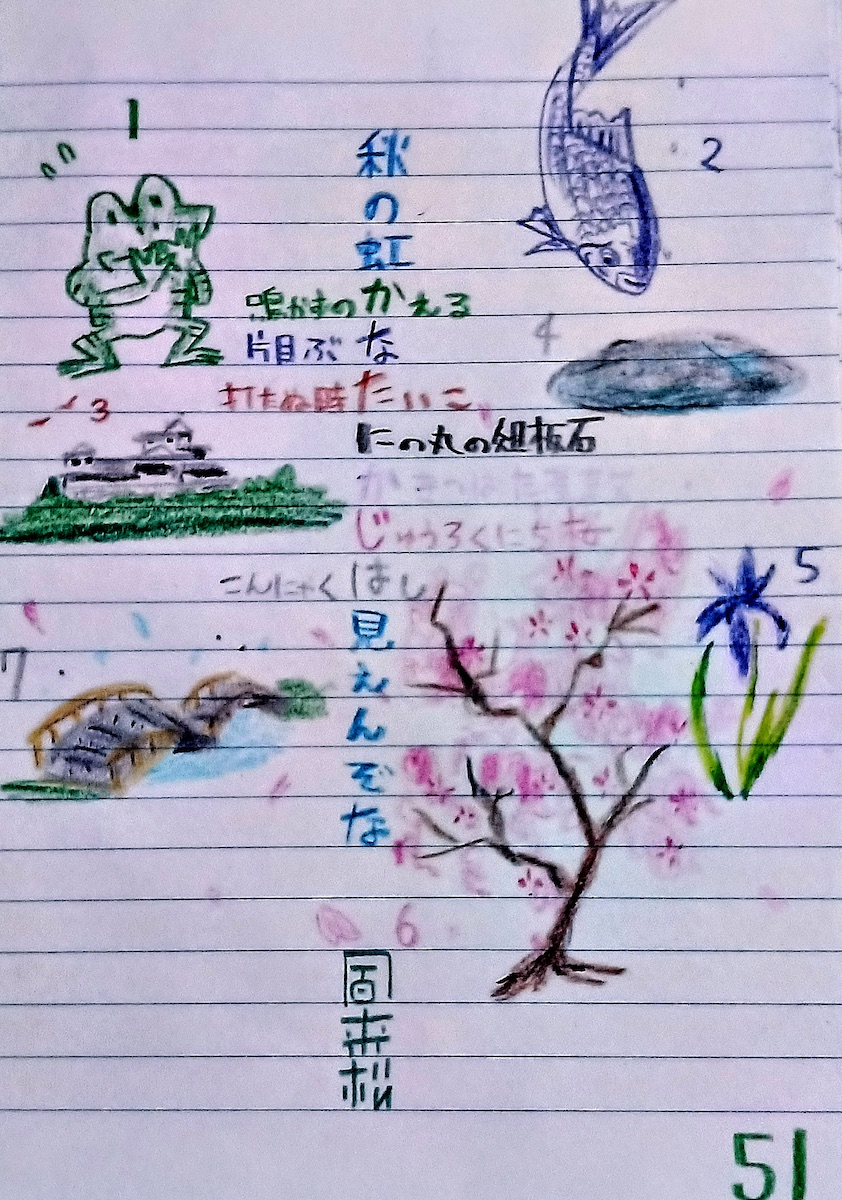 1
2
秋の虹
鳴かずのかえる
片目ぶな
4
打たぬ時たいこ
3
にの丸の俎板石
かきつばた
じゅうろくにち
5
こんにゃくはし
見えんぞな
7
6
来松
51